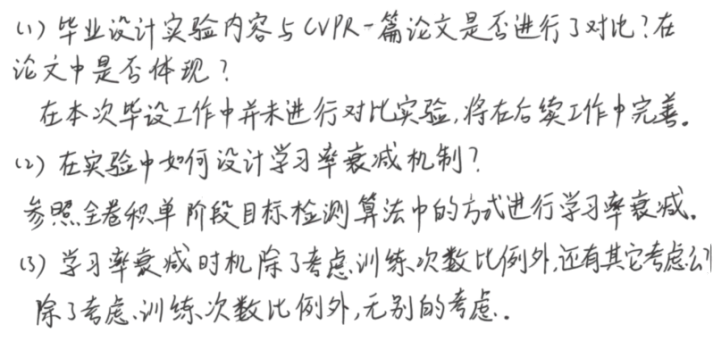 (1) 毕业设计实验内容与CVPR一篇论文是否进行了对比?在
论文中是否体现?
在本次毕设工作中并未进行对比实验,将在后续工作中完善。
(2) 在实验中如何设计学习率衰减机制?
参照全卷积单阶段目标检测算法中的方式进行学习率衰减。
(3) 学习率衰减时机除了考虑训练次数比例外,还有其它考虑
除了考虑训练次数比例外,无别的考虑.